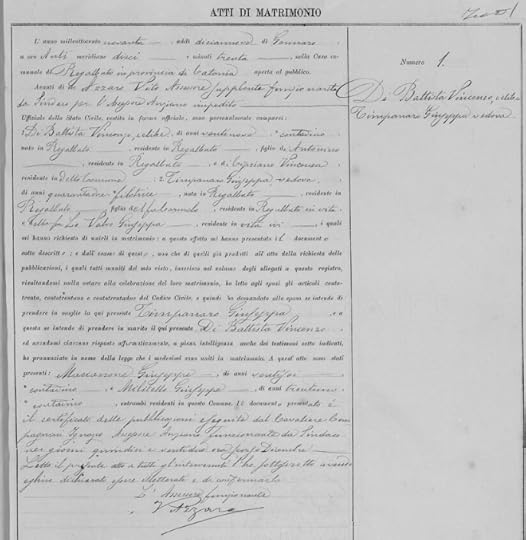 ATTI DI MATRIMONIO
Numero 1.
Di Battista Vincenzo, celibe
Timpanaro Giuseppa vedova
L'anno milleottocento novanta, addì diciannove di Gennaro
a ore Anti meridiane dieci e minuti trenta, nella Casa co-
munale di Regalbuto in provincia di Catania aperta al pubblico.
Avanti di me Nazaro Vito Assessore supplente funzionante
da Sindaco per l'Assessore Anziano impedito
Uffiziale dello Stato Civile, vestito in forma ufficiale, sono personalmente comparsi:
1° Di Battista Vincenzo, celibe, di anni ventinove, contadino
nato in Regalbuto, residente in Regalbuto, figlio di Antonino
, residente in Regalbuto, e di Cipriano Vincenza
, residente in Detto Comune; 2° Timpanaro Giuseppa vedova
di anni quarantadue filatrice, nata in Regalbuto, residente in
Regalbuto, figlia del fu Carmelo, residente in Regalbuto in vita
e della fu Lo Valvo Giuseppa, residente in vita ivi, i quali
mi hanno richiesto di unirli in matrimonio; a questo effetto mi hanno presentato il documento
sotto descritto; e dall'esame di questo, non che di quelli già prodotti all'atto della richiesta delle
pubblicazioni, i quali tutti muniti del mio visto, inserisco nel volume degli allegati a questo registro,
risultandomi nulla ostare alla celebrazione del loro matrimonio, ho letto agli sposi gli articoli cento-
trenta, centotrentuno e centotrentadue del Codice Civile, e quindi ho domandato allo sposo se intende di
prendere in moglie la qui presente Timpanaro Giuseppa, e a
questa se intende di prendere in marito il qui presente Di Battista Vincenzo
ed avendomi ciascuno risposto affermativamente, a piena intelligenza anche dei testimoni sotto indicati,
ho pronunziato in nome della legge che i medesimi sono uniti in matrimonio. A quest'atto sono stati
presenti: Giuseppe, di anni ventisei
contadino e Militello Giuseppe, di anni trentuno
contadino, entrambi residenti in questo Comune. Il documento presentato è
il certificato delle pubblicazioni eseguite dal Cavaliere Com-
pagnini Ignazio Assessore Anziano funzionante da Sindaco
nei giorni quindici e ventidue ora scorso Dicembre
Letto il presente atto a tutti gl'intervenuti l'ho sottoscritto avendo
eglino dichiarato essere illetterati e di confermarlo
L'Assessore funzionante
V Nazaro